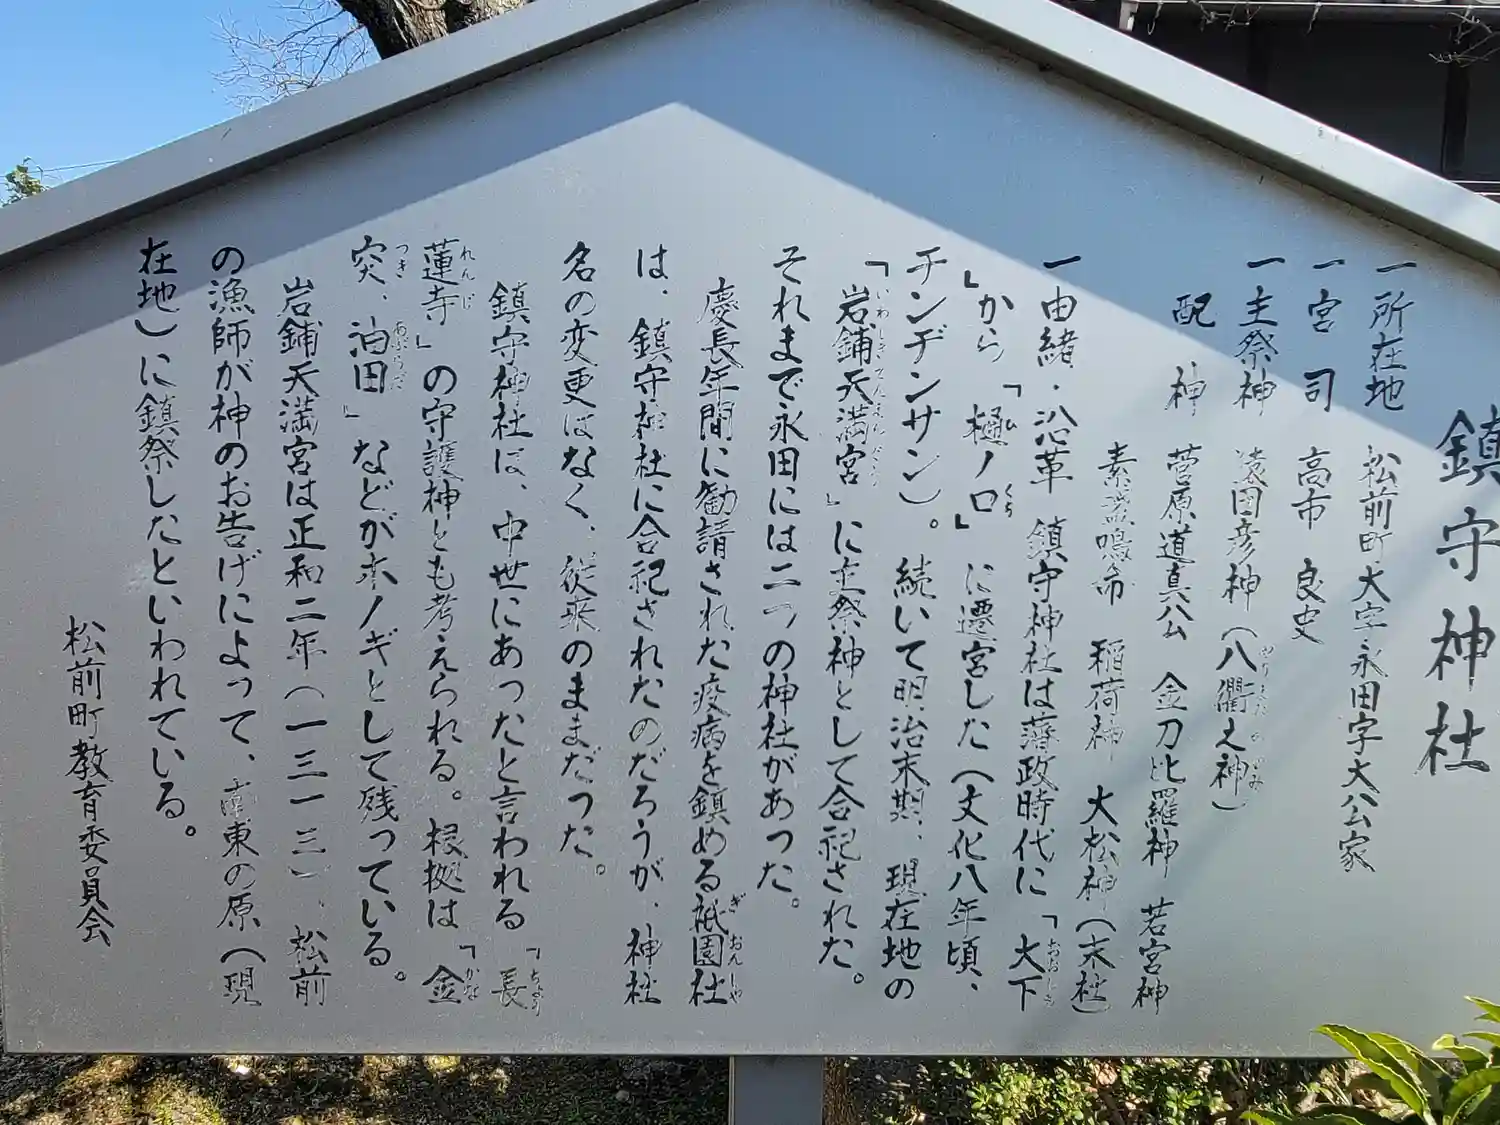 鎮守神社
一所在地 松前町大字永田字大公家
一宮司 高市良史
一主祭神 猿田彦神（八衢之神）
配神 菅原道真公 金刀比羅神 若宮神
素盞嗚命 稲荷神 大松神（末社）
一由緒・沿革 鎮守神社は藩政時代に「大下
」から「樋ノ口」に遷宮した（文化八年頃、
チンヂンサン）。続いて明治末期、現在地の
「岩鋪天満宮」に主祭神として合祀された。
それまで永田には二つの神社があった。
慶長年間に勧請された疫病を鎮める祇園社
は、鎮守神社に合祀されたのだろうが、神社
名の変更はなく、従来のままだった。
鎮守神社は、中世にあったと言われる「長
蓮寺」の守護神とも考えられる。根拠は「金
突、油田」などがホノギとして残っている。
岩鋪天満宮は正和二年（一三一三）、松前
の漁師が神のお告げによって、南東の原（現
在地）に鎮祭したといわれている。
松前町教育委員会